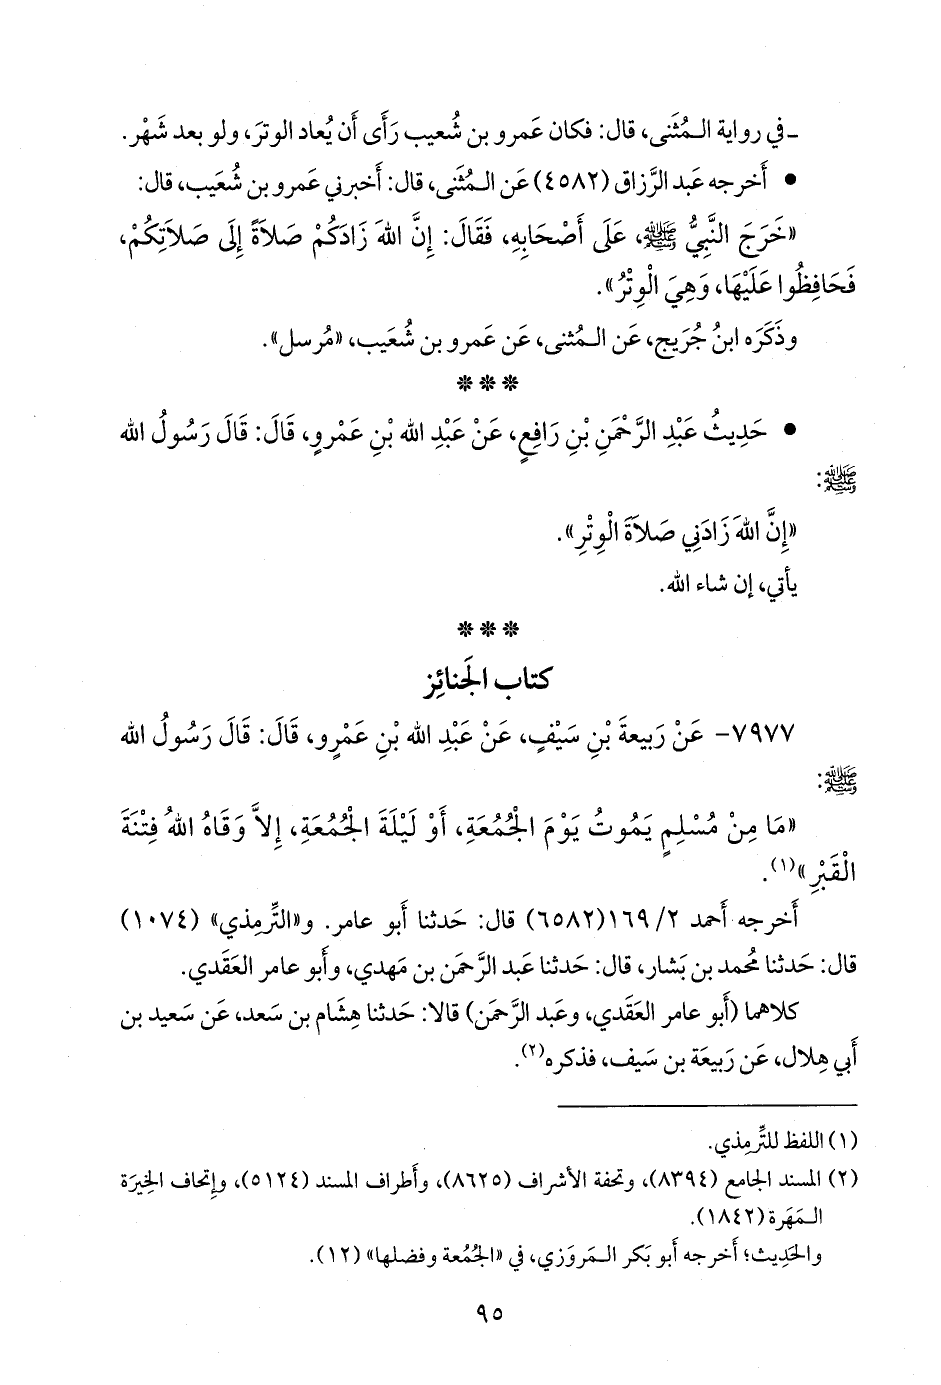 ـ في رواية المُثنى، قال: فكان عَمرو بن شُعيب رَأَى أَن يُعاد الوترَ، ولو بعد شَهْر.
• أَخرجه عَبد الرَّزاق (٤٥٨٢) عَن المُثنى، قال: أَخبرني عَمرو بن شُعَيب، قال:
«خَرَجَ النَّبِيُّ ﷺ، عَلَى أَصْحَابِهِ، فَقَالَ: إِنَّ اللهَ زَادَكُمْ صَلاَةً إِلَى صَلاَتِكُمْ،
فَحَافِظُوا عَلَيْهَا، وَهِيَ الْوِتْرُ».
وذَكَرَه ابنُ جُرَيج، عَن المُثنى، عَن عَمرو بن شُعَيب، «مُرسل».
* * *
• حَدِيثُ عَبْدِ الرَّحْمَنِ بْنِ رَافِعٍ، عَنْ عَبْدِ اللهِ بْنِ عَمْرٍو، قَالَ: قَالَ رَسُولُ الله
ﷺ:
«إِنَّ اللهَ زَادَنِي صَلاَةَ الْوِتْرِ».
يأتي، إن شاء الله.
* * *
كتاب الجَنائِز
٧٩٧٧- عَنْ رَبِيعةَ بْنِ سَيْفٍ، عَنْ عَبْدِ الله بْنِ عَمْرٍو، قَالَ: قَالَ رَسُولُ الله
ﷺ:
«مَا مِنْ مُسْلِمٍ يَمُوتُ يَوْمَ الْجُمُعَةِ، أَوْ لَيْلَةَ الْجُمُعَةِ، إِلاَّ وَقَاهُ اللهُ فِتْنَةَ
الْقَبْرِ»(١).
أَخرجه أَحمد ٢/ ١٦٩(٦٥٨٢) قال: حَدثنا أَبو عامر. و«التِّرمِذي» (١٠٧٤)
قال: حَدثنا مُحمد بن بَشار، قال: حَدثنا عَبد الرَّحمَن بن مَهدي، وأَبو عامر العَقَدي.
كلاهما (أَبو عامر العَقَدي، وعَبد الرَّحمَن) قالا: حَدثنا هِشَام بن سَعد، عَن سَعيد بن
أَبي هِلال، عَن رَبيعَة بن سَيف، فذكره(٢).
(١) اللفظ للتِّرمِذي.
(٢) المسند الجامع (٨٣٩٤)، وتحفة الأشراف (٨٦٢٥)، وأَطراف المسند (٥١٢٤)، وإتحاف الخِيرَة
المَهَرة (١٨٤٢).
والحَدِيث؛ أَخرجه أَبو بَكر المَروَزي، في «الجُمُعة وفضلها» (١٢).
٩٥